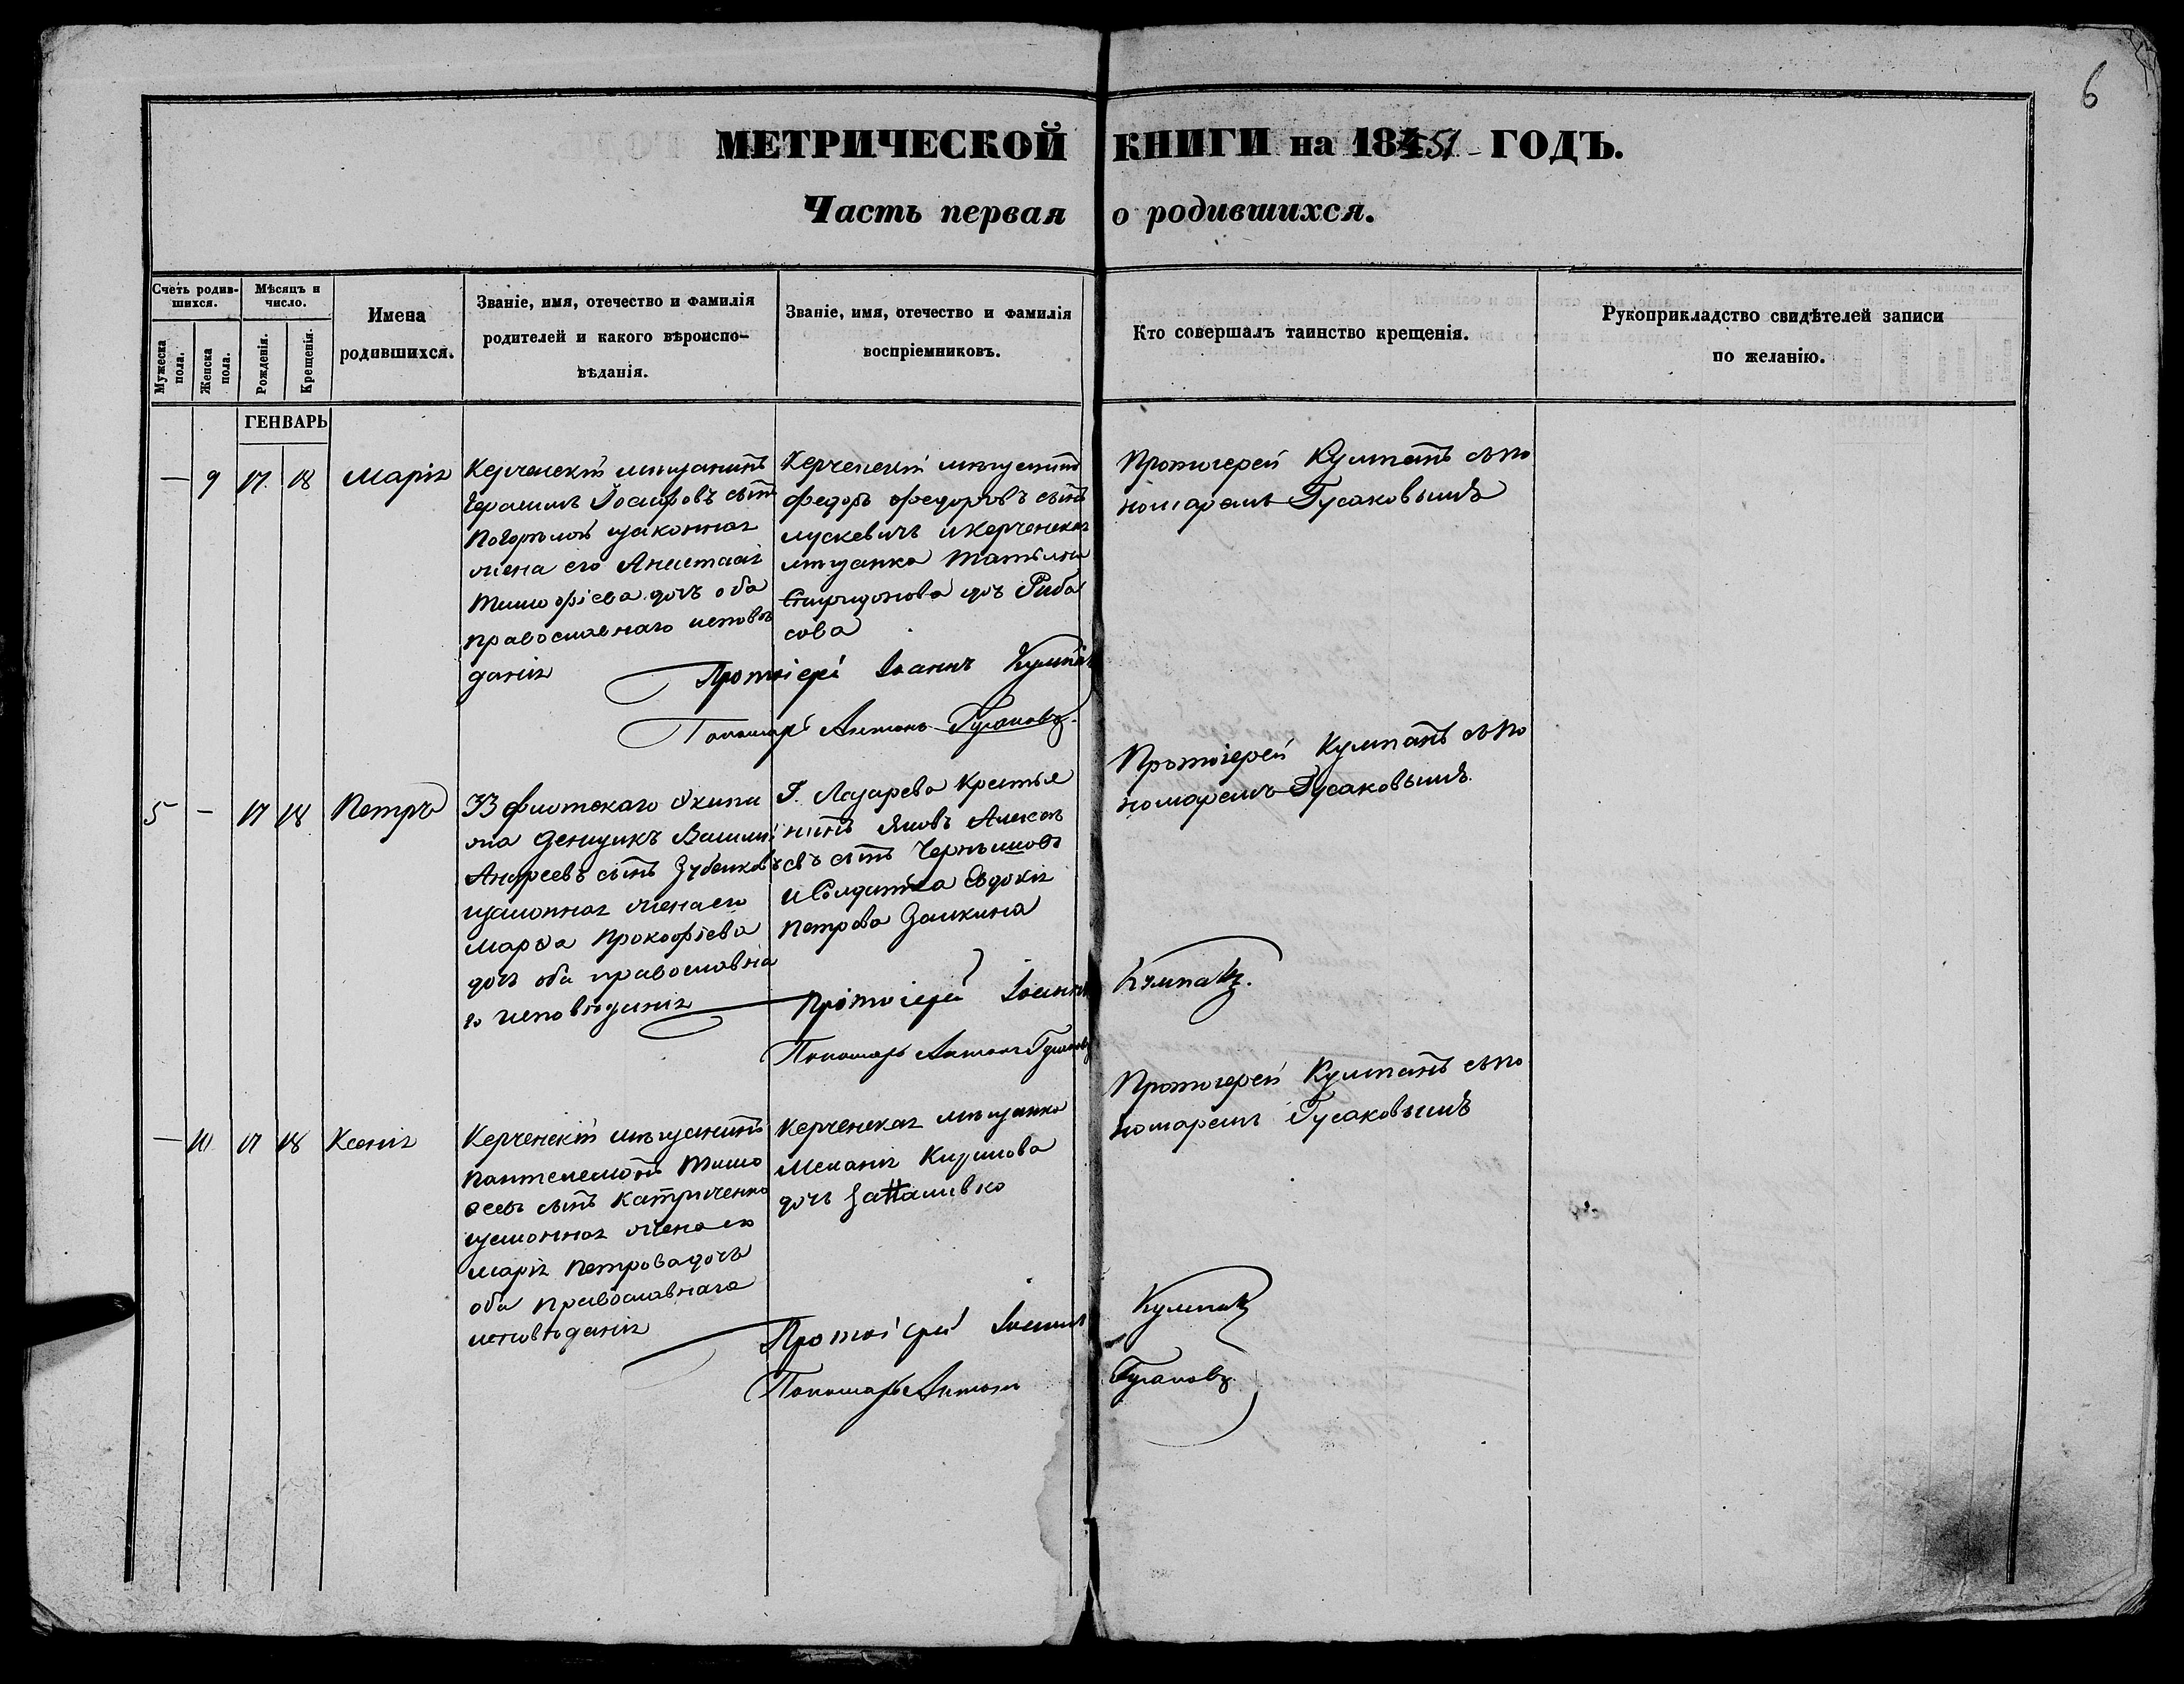 6
МЕТРИЧЕСКОЙ КНИГИ на 1851 ГОДЪ.
Часть первая о родившихся.
Счетъ родив-
шихся.
Мужеска пола.
Женска пола.
Мѣсяцъ и
число.
Рожденія.
Крещенія.
Имена
родившихся.
Званіе, имя, отечество и фамилія
родителей и какого вѣроиспо-
вѣданія.
Званіе, имя, отечество и фамилія
воспріемниковъ.
Кто совершалъ таинство крещенія.
Рукоприкладство свидѣтелей записи
по желанію.
ГЕНВАРЬ
— 9 17 18 Марія
Керченскій мѣщанинъ
Герасимъ Іосифовъ сынъ
законная
жена его Анастасія
Тимофіева дочь оба
православнаго исповѣ
данія
Керченскій мѣщанинъ
Федоръ Федоровъ сынъ
мускевичъ и Керченская
мѣщанка Татіяна
Спиридонова дочь Риба
сова
Протоіерей Кумпанъ съ по
номаремъ Гусаковымъ
Протоіерей Іоаннъ Кумпанъ
Пономарь Антонъ Гусаковъ
5 — 17 18 Петръ
33 флотскаго Экипа
жа Денщикъ Василій
Андреевъ сынъ Зубенковъ
законная жена его
Марѳа Прокофіева
дочь оба православна
го исповѣданія
Г. Лазарева Крестья
нинъ Яковъ Алексѣ
евъ сынъ Чернышовъ
и Солдатка Евдокія
Петрова Заикина
Протоіерей Кумпанъ съ по
номаремъ Гусаковымъ
Протоіерей Іоаннъ Кумпанъ.
Пономарь Антонъ Гусаковъ
— 10 17 18 Ксенія
Керченскій мѣщанинъ
Пантелемонъ Тимо
ѳеевъ сынъ Катриченко
законная жена его
Марія Петрова дочь
оба православнаго
исповѣданія
Керченская мѣщанка
Меланія Кирилова
дочь
Протоіерей Кумпанъ съ по
номаремъ Гусаковымъ
Протоіерей Іоаннъ Кумпанъ
Пономарь Антонъ Гусаковъ